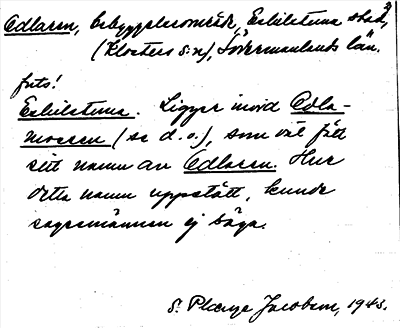 Edlaren, bebyggelseområde, Eskilstuna stad,
(Klosters s:n), Södermanlands län.
foto!
Eskilstuna. Ligger invid Edla-
mossen (se d. o.), som väl fått
sitt namn av Edlaren. Hur
detta namn uppstått, kunde
sagesmännen ej säga.
S. Jacobson, 1945.